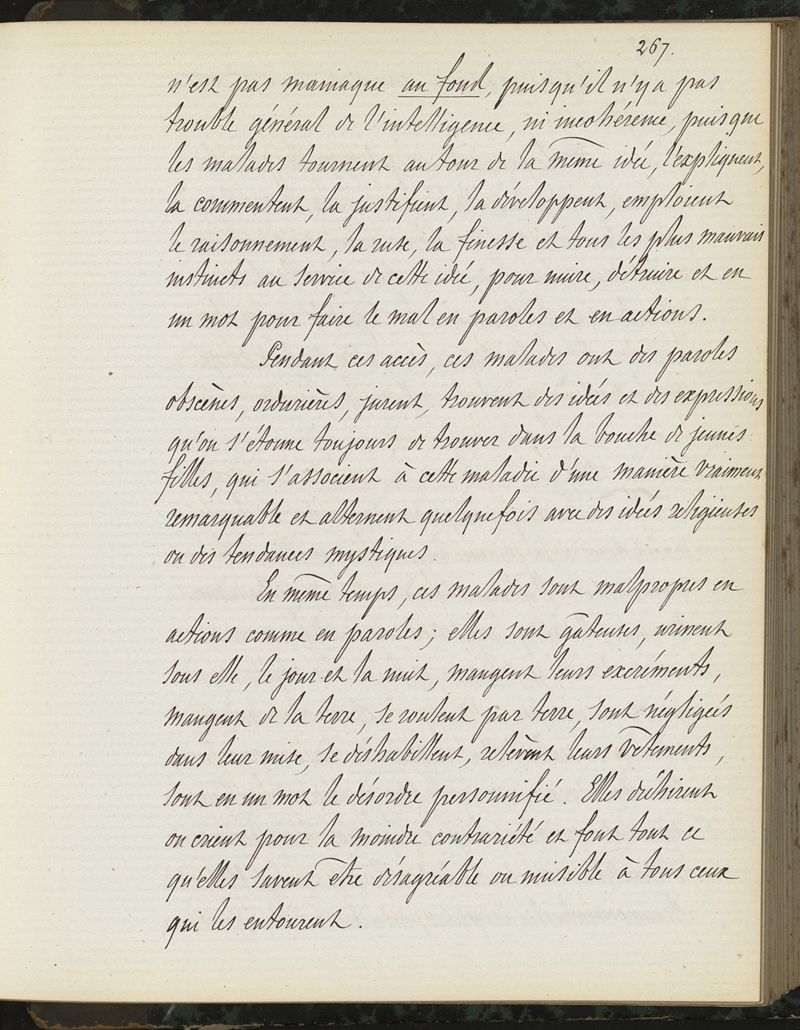 267.
n'est pas maniaque au fond, puisqu'il n'y a pas
trouble général de l'intelligence, ni incohérence, puisque
les malades tournent autour de la même idée, l'expliquent,
la commentent, la justifient, la développent, emploient
le raisonnement, la ruse, la finesse et tous les plus mauvais
instincts au service de cette idée, pour nuire, détruire et en
un mot pour faire le mal en paroles et en actions.
Pendant ces accès, ces malades ont des paroles
obscènes, ordurières, jurent, trouvent des idées et des expressions
qu'on s'étonne toujours de trouver dans la bouche de jeunes
filles, qui s'associent à cette maladie d'une manière vraiment
remarquable et alternent quelquefois avec des idées religieuses
ou des tendances mystiques.
En même temps, ces malades sont malpropres en
actions comme en paroles; elles sont gâteuses, urinent
sous elle, le jour et la nuit, mangent leurs excréments,
mangent de la terre, se roulent par terre, sont négligées
dans leur mise, se déshabillent, relèvent leurs vêtements,
sont en un mot le désordre personnifié. Elles déchirent
ou crient pour la moindre contrariété et font tout ce
qu'elles savent être désagréable ou nuisible à tous ceux
qui les entourent.